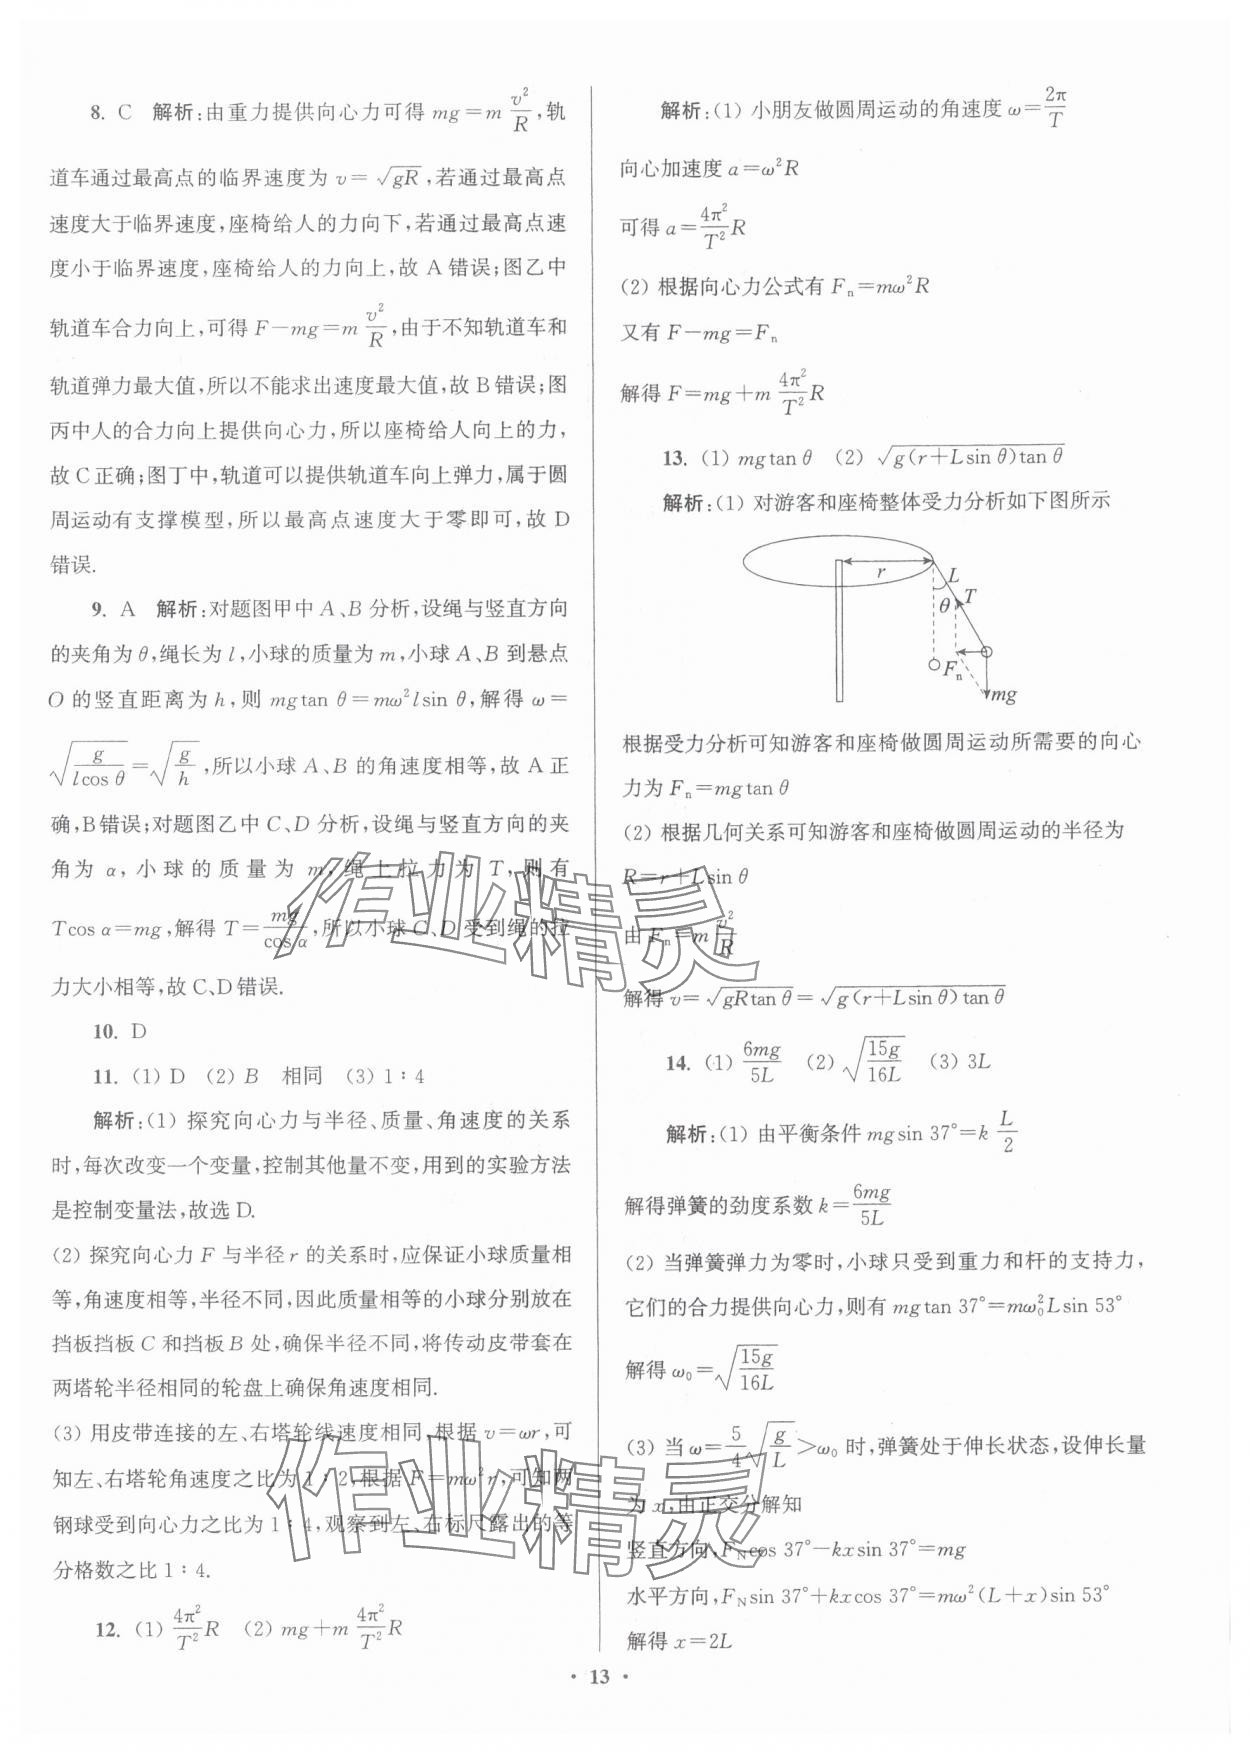 8. C 解析:由重力提供向心力可得 mg=m v²/R,轨
道车通过最高点的临界速度为 v=√(gR),若通过最高点
速度大于临界速度,座椅给人的力向下,若通过最高点速
度小于临界速度,座椅给人的力向上,故 A 错误;图乙中
轨道车合力向上,可得 F-mg=m v²/R,由于不知轨道车和
轨道弹力最大值,所以不能求出速度最大值,故 B 错误;图
丙中人的合力向上提供向心力,所以座椅给人向上的力,
故 C 正确;图丁中,轨道可以提供轨道车向上弹力,属于圆
周运动有支撑模型,所以最高点速度大于零即可,故 D
错误.
9. A 解析:对题图甲中 A、B 分析,设绳与竖直方向
的夹角为 θ,绳长为 l,小球的质量为 m,小球 A、B 到悬点
O 的竖直距离为 h,则 mgtan θ=mω²lsin θ,解得 ω=
√(g/(lcos θ))=√(g/h),所以小球 A、B 的角速度相等,故 A 正
确,B 错误;对题图乙中 C、D 分析,设绳与竖直方向的夹
角为 α,小球的质量为 m,绳上拉力为 T,则有
Tcos α=mg,解得 T=mg/cos α,所以小球 C、D 受到绳的拉
力大小相等,故 C、D 错误.
10. D
11. (1) D (2) B 相同 (3) 1∶4
解析:(1) 探究向心力与半径、质量、角速度的关系
时,每次改变一个变量,控制其他量不变,用到的实验方法
是控制变量法,故选 D.
(2) 探究向心力 F 与半径 r 的关系时,应保证小球质量相
等,角速度相等,半径不同,因此质量相等的小球分别放在
挡板挡板 C 和挡板 B 处,确保半径不同,将传动皮带套在
两塔轮半径相同的轮盘上确保角速度相同.
(3) 用皮带连接的左、右塔轮线速度相同,根据 v=ωr,可
知左、右塔轮角速度之比为 1∶2,根据 F=mω²r,可知两
钢球受到向心力之比为 1∶4,观察到左、右标尺露出的等
分格数之比 1∶4.
12. (1) 4π²/T² R (2) mg+m 4π²/T² R
解析:(1) 小朋友做圆周运动的角速度 ω=2π/T
向心加速度 a=ω²R
可得 a=4π²/T² R
(2) 根据向心力公式有 Fₙ=mω²R
又有 F-mg=Fₙ
解得 F=mg+m 4π²/T² R
13. (1) mgtan θ (2) √(g(r+Lsin θ)tan θ)
解析:(1) 对游客和座椅整体受力分析如下图所示
r
L
θ T
Fₙ
mg
根据受力分析可知游客和座椅做圆周运动所需要的向心
力为 Fₙ=mgtan θ
(2) 根据几何关系可知游客和座椅做圆周运动的半径为
R=r+Lsin θ
由 Fₙ=m v²/R
解得 v=√(gRtan θ)=√(g(r+Lsin θ)tan θ)
14. (1) 6mg/5L (2) √(15g/16L) (3) 3L
解析:(1) 由平衡条件 mgsin 37°=k L/2
解得弹簧的劲度系数 k=6mg/5L
(2) 当弹簧弹力为零时,小球只受到重力和杆的支持力,
它们的合力提供向心力,则有 mgtan 37°=mω₀²Lsin 53°
解得 ω₀=√(15g/16L)
(3) 当 ω=5/4√(g/L)>ω₀ 时,弹簧处于伸长状态,设伸长量
为 x,由正交分解知
竖直方向,F_N cos 37°-kxsin 37°=mg
水平方向,F_N sin 37°+kxcos 37°=mω²(L+x)sin 53°
解得 x=2L
· 13 ·
作业精灵
作业精灵